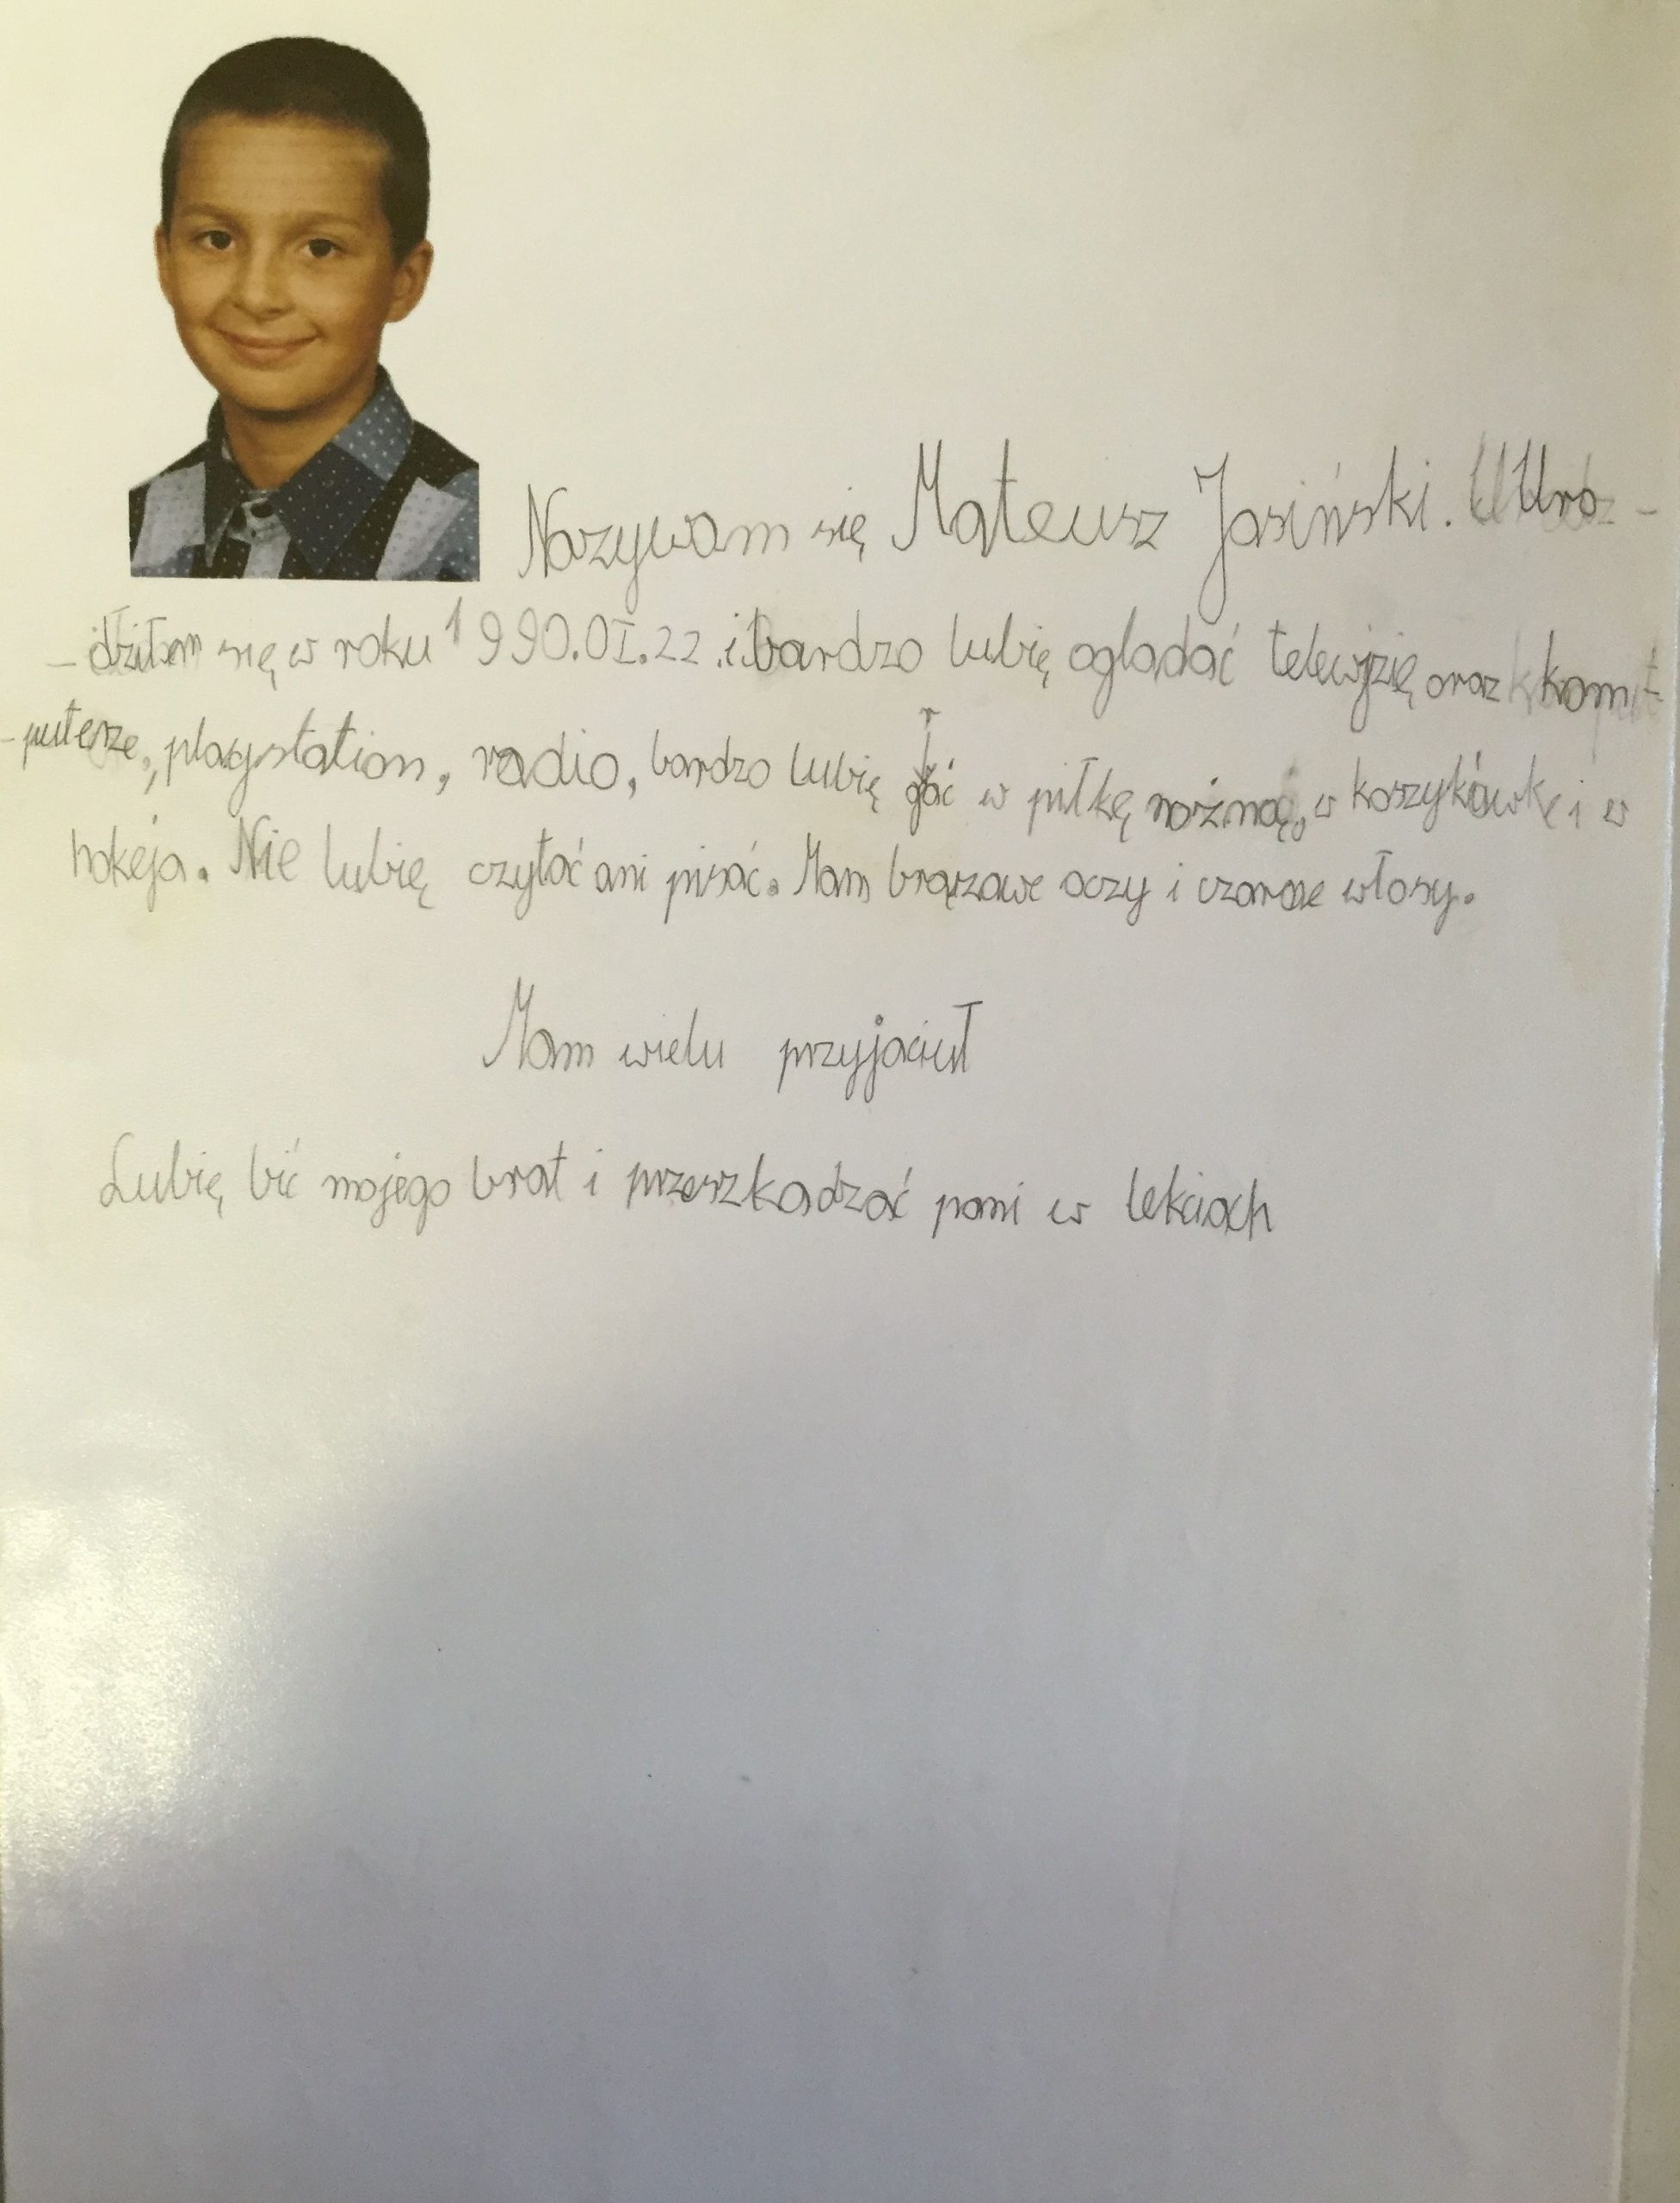 Nazywam się Mateusz Jasiński. Uro-
-dziłem się w roku 1990.01.22. i bardzo lubię ogladać telewizię oraz kom-
-puterze, playstation, radio, bardzo lubię grać w piłkę nożną, w koszykówkę i w
hokeja. Nie lubię czytać ani pisać. Mam brązawe oczy i czarne włosy.
Mam wielu przyjaciuł
Lubię bić mojego brat i przeszkadzać pani w lekciach